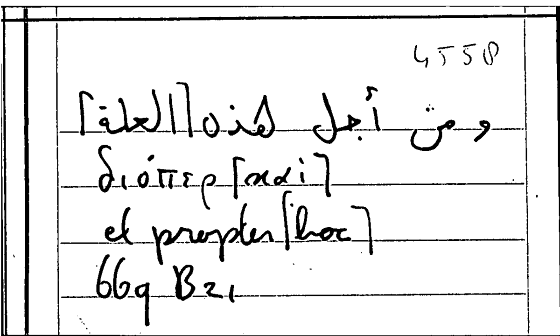 4558
ومن أجل هذه [العلة]
διόπερ [καὶ]
et propter [hoc]
669 B21